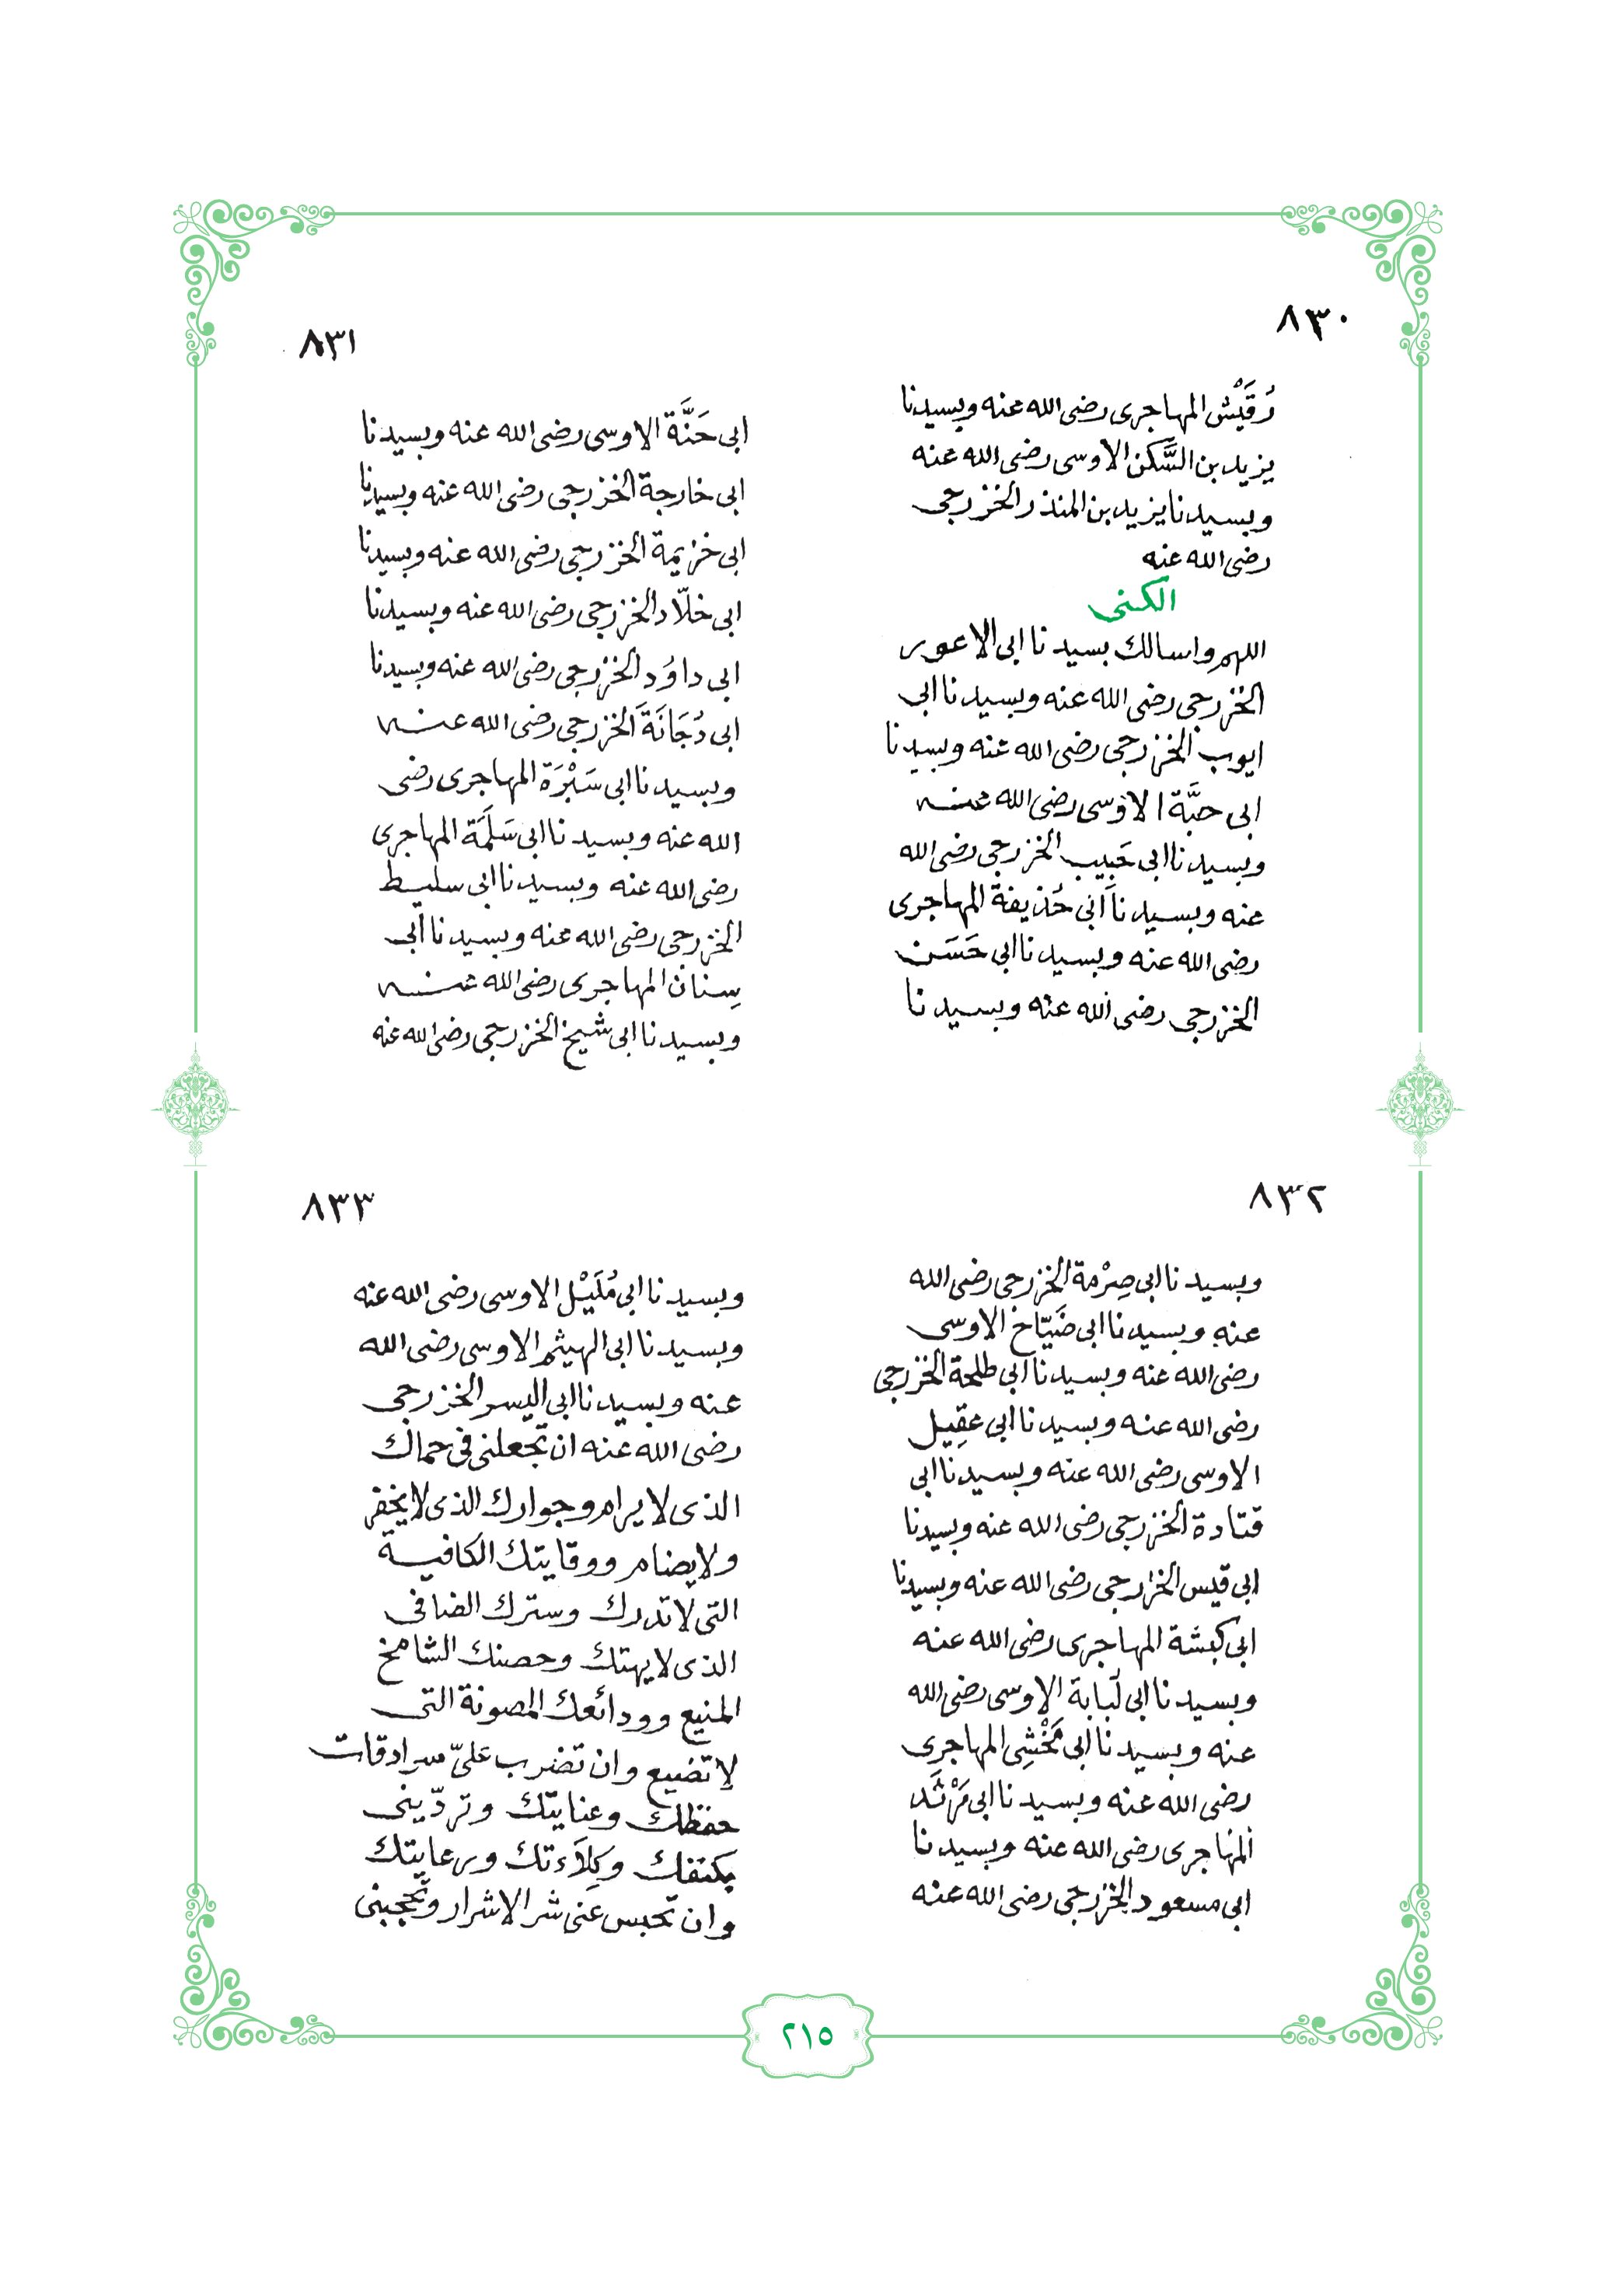 ٨٣٠
رُقَيْش المهاجرى رضى الله عنه وبسيدنا
يزيد بن السَّكن الاوسى رضى الله عنه
وبسيدنا يزيد بن المنذر الخزرجى
رضى الله عنه
الكنى
اللهم واسالك بسيدنا ابى الاعور
الخزرجى رضى الله عنه وبسيدنا ابى
ايوب الخزرجى رضى الله عنه وبسيدنا
ابى حبَّة الاوسى رضى الله عنه
وبسيدنا ابى حَبِيب الخزرجى رضى الله
عنه وبسيدنا ابى حُذيفة المهاجرى
رضى الله عنه وبسيدنا ابى حَسَن
الخزرجى رضى الله عنه وبسيدنا
٨٣١
ابى حَنَّة الاوسى رضى الله عنه وبسيدنا
ابى خارجة الخزرجى رضى الله عنه وبسيدنا
ابى خزيمة الخزرجى رضى الله عنه وبسيدنا
ابى خلّاد الخزرجى رضى الله عنه وبسيدنا
ابى داوُد الخزرجى رضى الله عنه وبسيدنا
ابى دُجَانَةَ الخزرجى رضى الله عنه
وبسيدنا ابى سَبْرَة المهاجرى رضى
الله عنه وبسيدنا ابى سَلَمَة المهاجرى
رضى الله عنه وبسيدنا ابى سليط
الخزرجى رضى الله عنه وبسيدنا ابى
سِنان المهاجرى رضى الله عنه
وبسيدنا ابى شيخ الخزرجى رضى الله عنه
٨٣٢
وبسيدنا ابى صِرْمة الخزرجى رضى الله
عنه وبسيدنا ابى ضَيّاخ الاوسى
رضى الله عنه وبسيدنا ابى طلحة الخزرجى
رضى الله عنه وبسيدنا ابى عقِيل
الاوسى رضى الله عنه وبسيدنا ابى
قتادة الخزرجى رضى الله عنه وبسيدنا
ابى قيس الخزرجى رضى الله عنه وبسيدنا
ابى كبشة المهاجرى رضى الله عنه
وبسيدنا ابى لُبابة الاوسى رضى الله
عنه وبسيدنا ابى مَخْشِى المهاجرى
رضى الله عنه وبسيدنا ابى مَرْثَد
المهاجرى رضى الله عنه وبسيدنا
ابى مسعود الخزرجى رضى الله عنه
٨٣٣
وبسيدنا ابى مُلَيْل الاوسى رضى الله عنه
وبسيدنا ابى الهيثم الاوسى رضى الله
عنه وبسيدنا ابى اليسر الخزرجى
رضى الله عنه ان تجعلنى فى حماك
الذى لا يرام وجوارك الذى لا يخفر
ولا يضام ووقايتك الكافية
التى لا تدرك وسترك الضافى
الذى لا يهتك وحصنك الشامخ
المنيع وودائعك المصونة التى
لا تضيع وان تضرب علىّ سرادقات
حفظك وعنايتك وتردّينى
بكنفك وكِلَاءتك ورعايتك
وان تحبس عنى شر الاشرار وتحجبنى
٢١٥